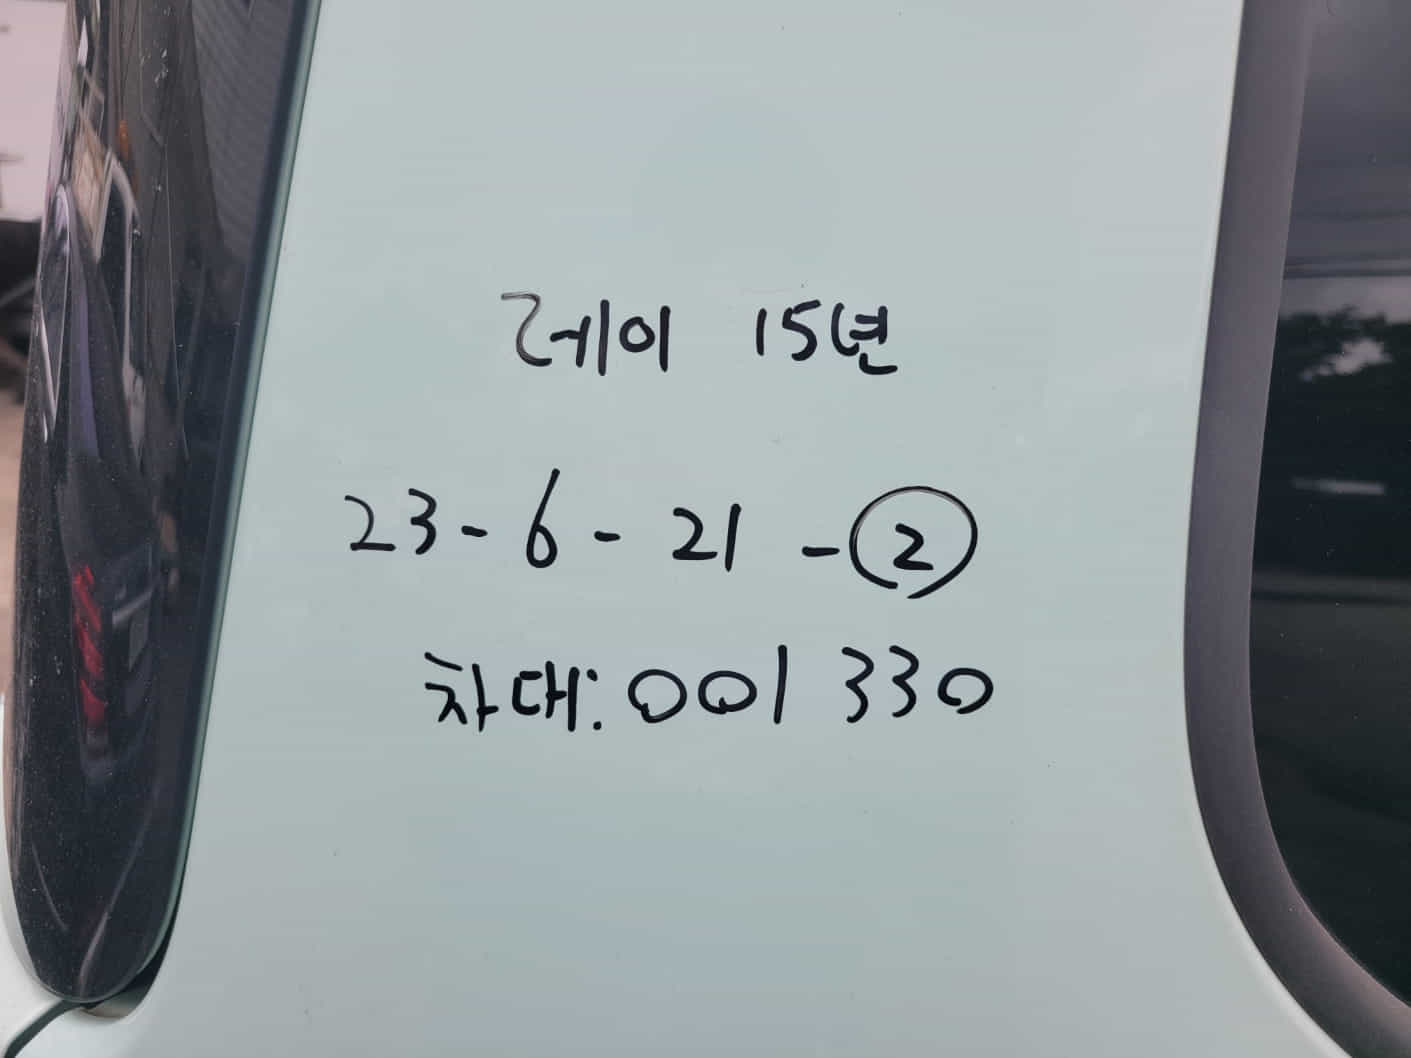 레이 15년
23-6-21-②
차대:001330